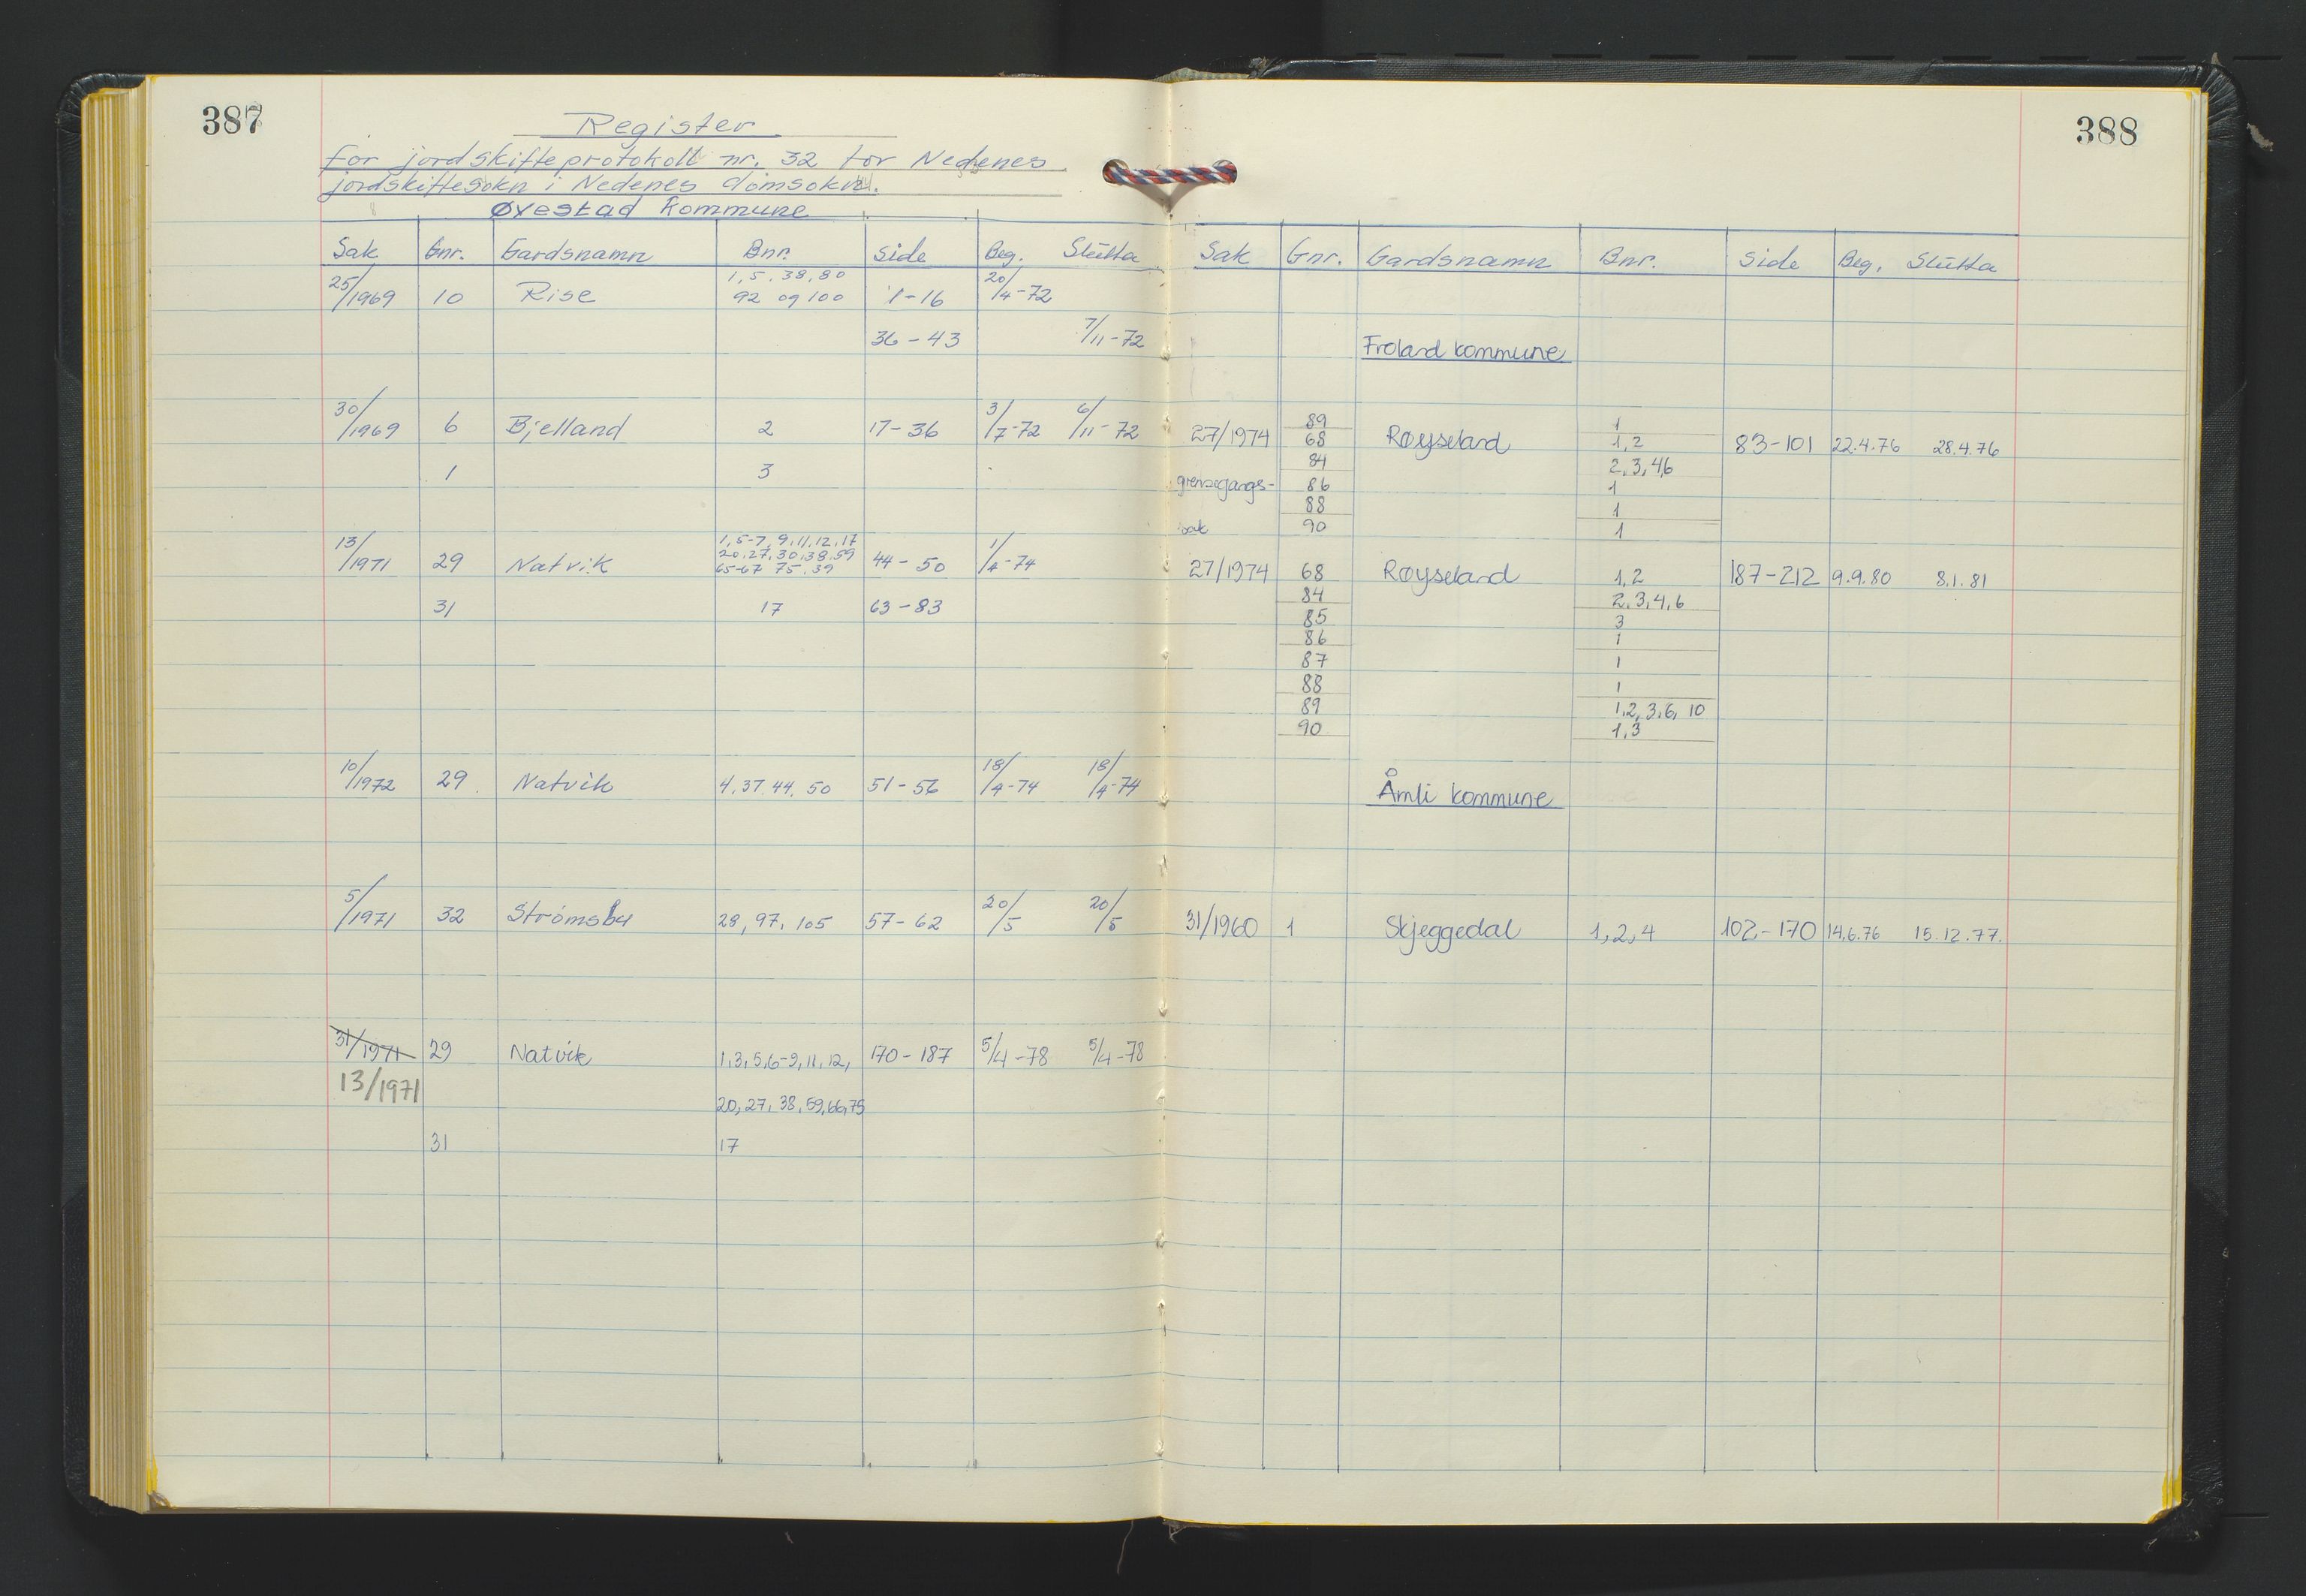 387
Register
for jordskifteprotokoll nr. 32 for Nedenes
jordskiftesokn i Nedenes domsokn.
Øyestad kommune
Sak Gnr. Gardsnamn Bnr. Side Beg. Slutta
25/1969 10 Rise 1, 5, 38, 80 92 og 100 1-16 20/4-72
36-43 7/11-72
30/1969 6 Bjelland 2 17-36 3/7-72 6/11-72
1 3
13/1971 29 Natvik 1, 5-7, 9, 11, 12, 17 20, 27, 30, 38, 59 65-67 75, 39 44-50 1/4-74
31 17 63-83
10/1972 29 Natvik 4, 37, 44, 50 51-56 18/4-74 18/4-74
5/1971 32 Strømsbu 28, 97, 105 57-62 20/5 20/5
31/1971 29 Natvik 1,3,5,6-9,11,12, 170-187 5/4-78 5/4-78
13/1971
20, 27, 38, 59, 66, 75
31 17
388
Sak Gnr. Gardsnamn Bnr. Side Beg. Slutta
Froland kommune
89 1
27/1974 68 Røyseland 1,2 83-101 22.4.76 28.4.76
84 2,3,4,6
grensegangs- 86 1
88 1
sak 90 1
27/1974 68 Røyseland 1,2 187-212 9.9.80 8.1.81
84 2,3,4,6
85 3
86 1
87 1
88 1
89 1,2,3,6,10
90 1,3
Åmli kommune
31/1960 1 Skjeggedal 1,2,4 102-170 14.6.76 15.12.77.